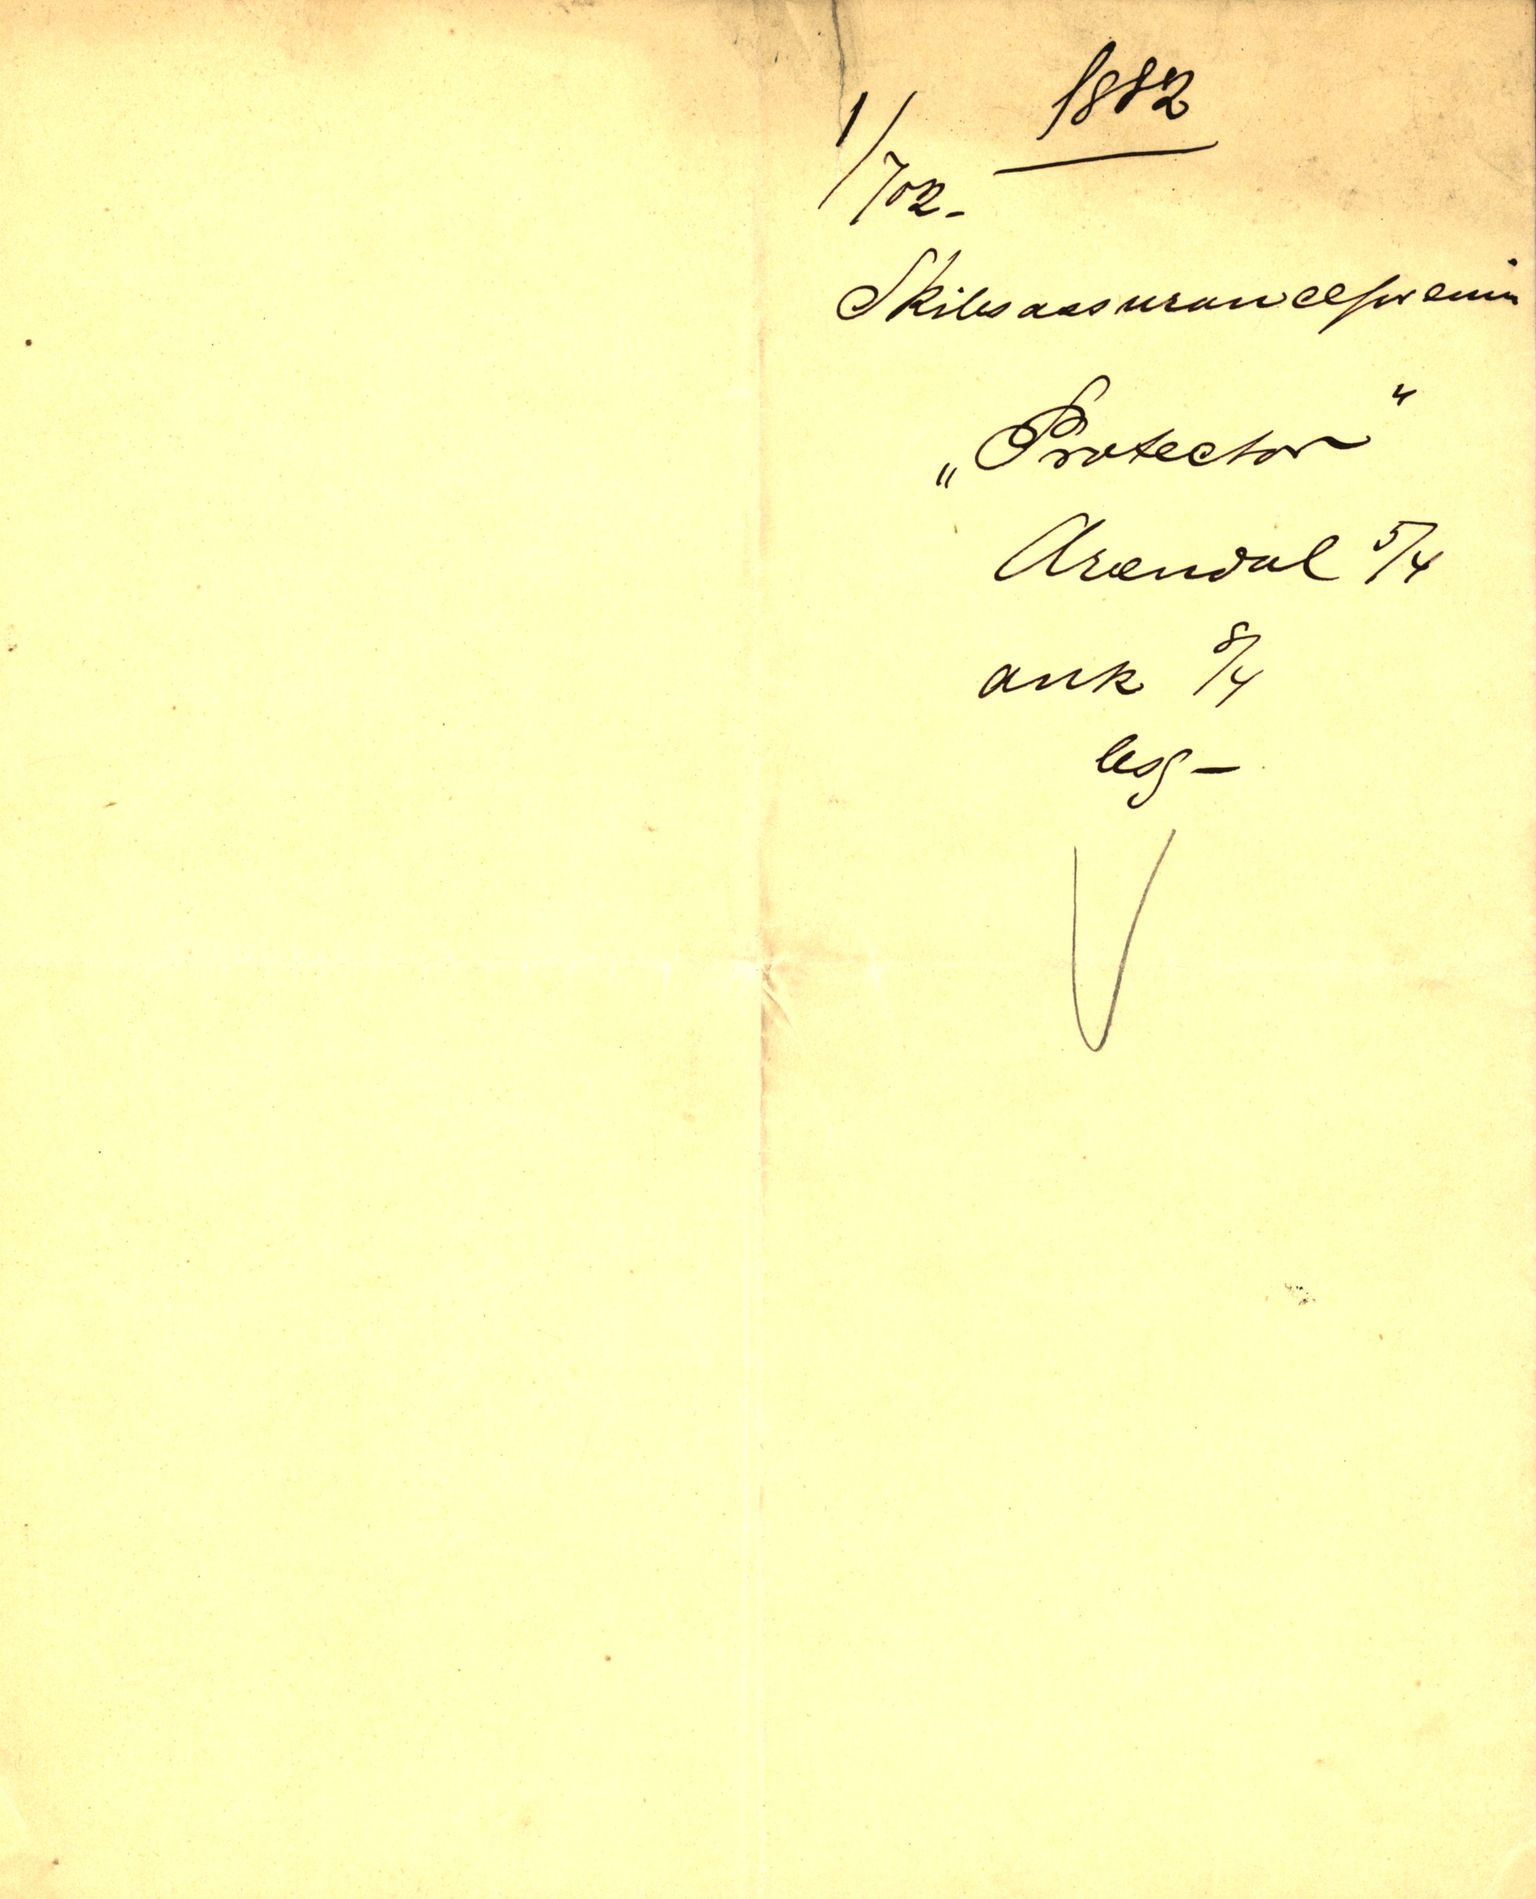 1882
1/702-
Skibsassuranceforenin
„Protector"
Arendal 5/4
ank 8/4
besg-